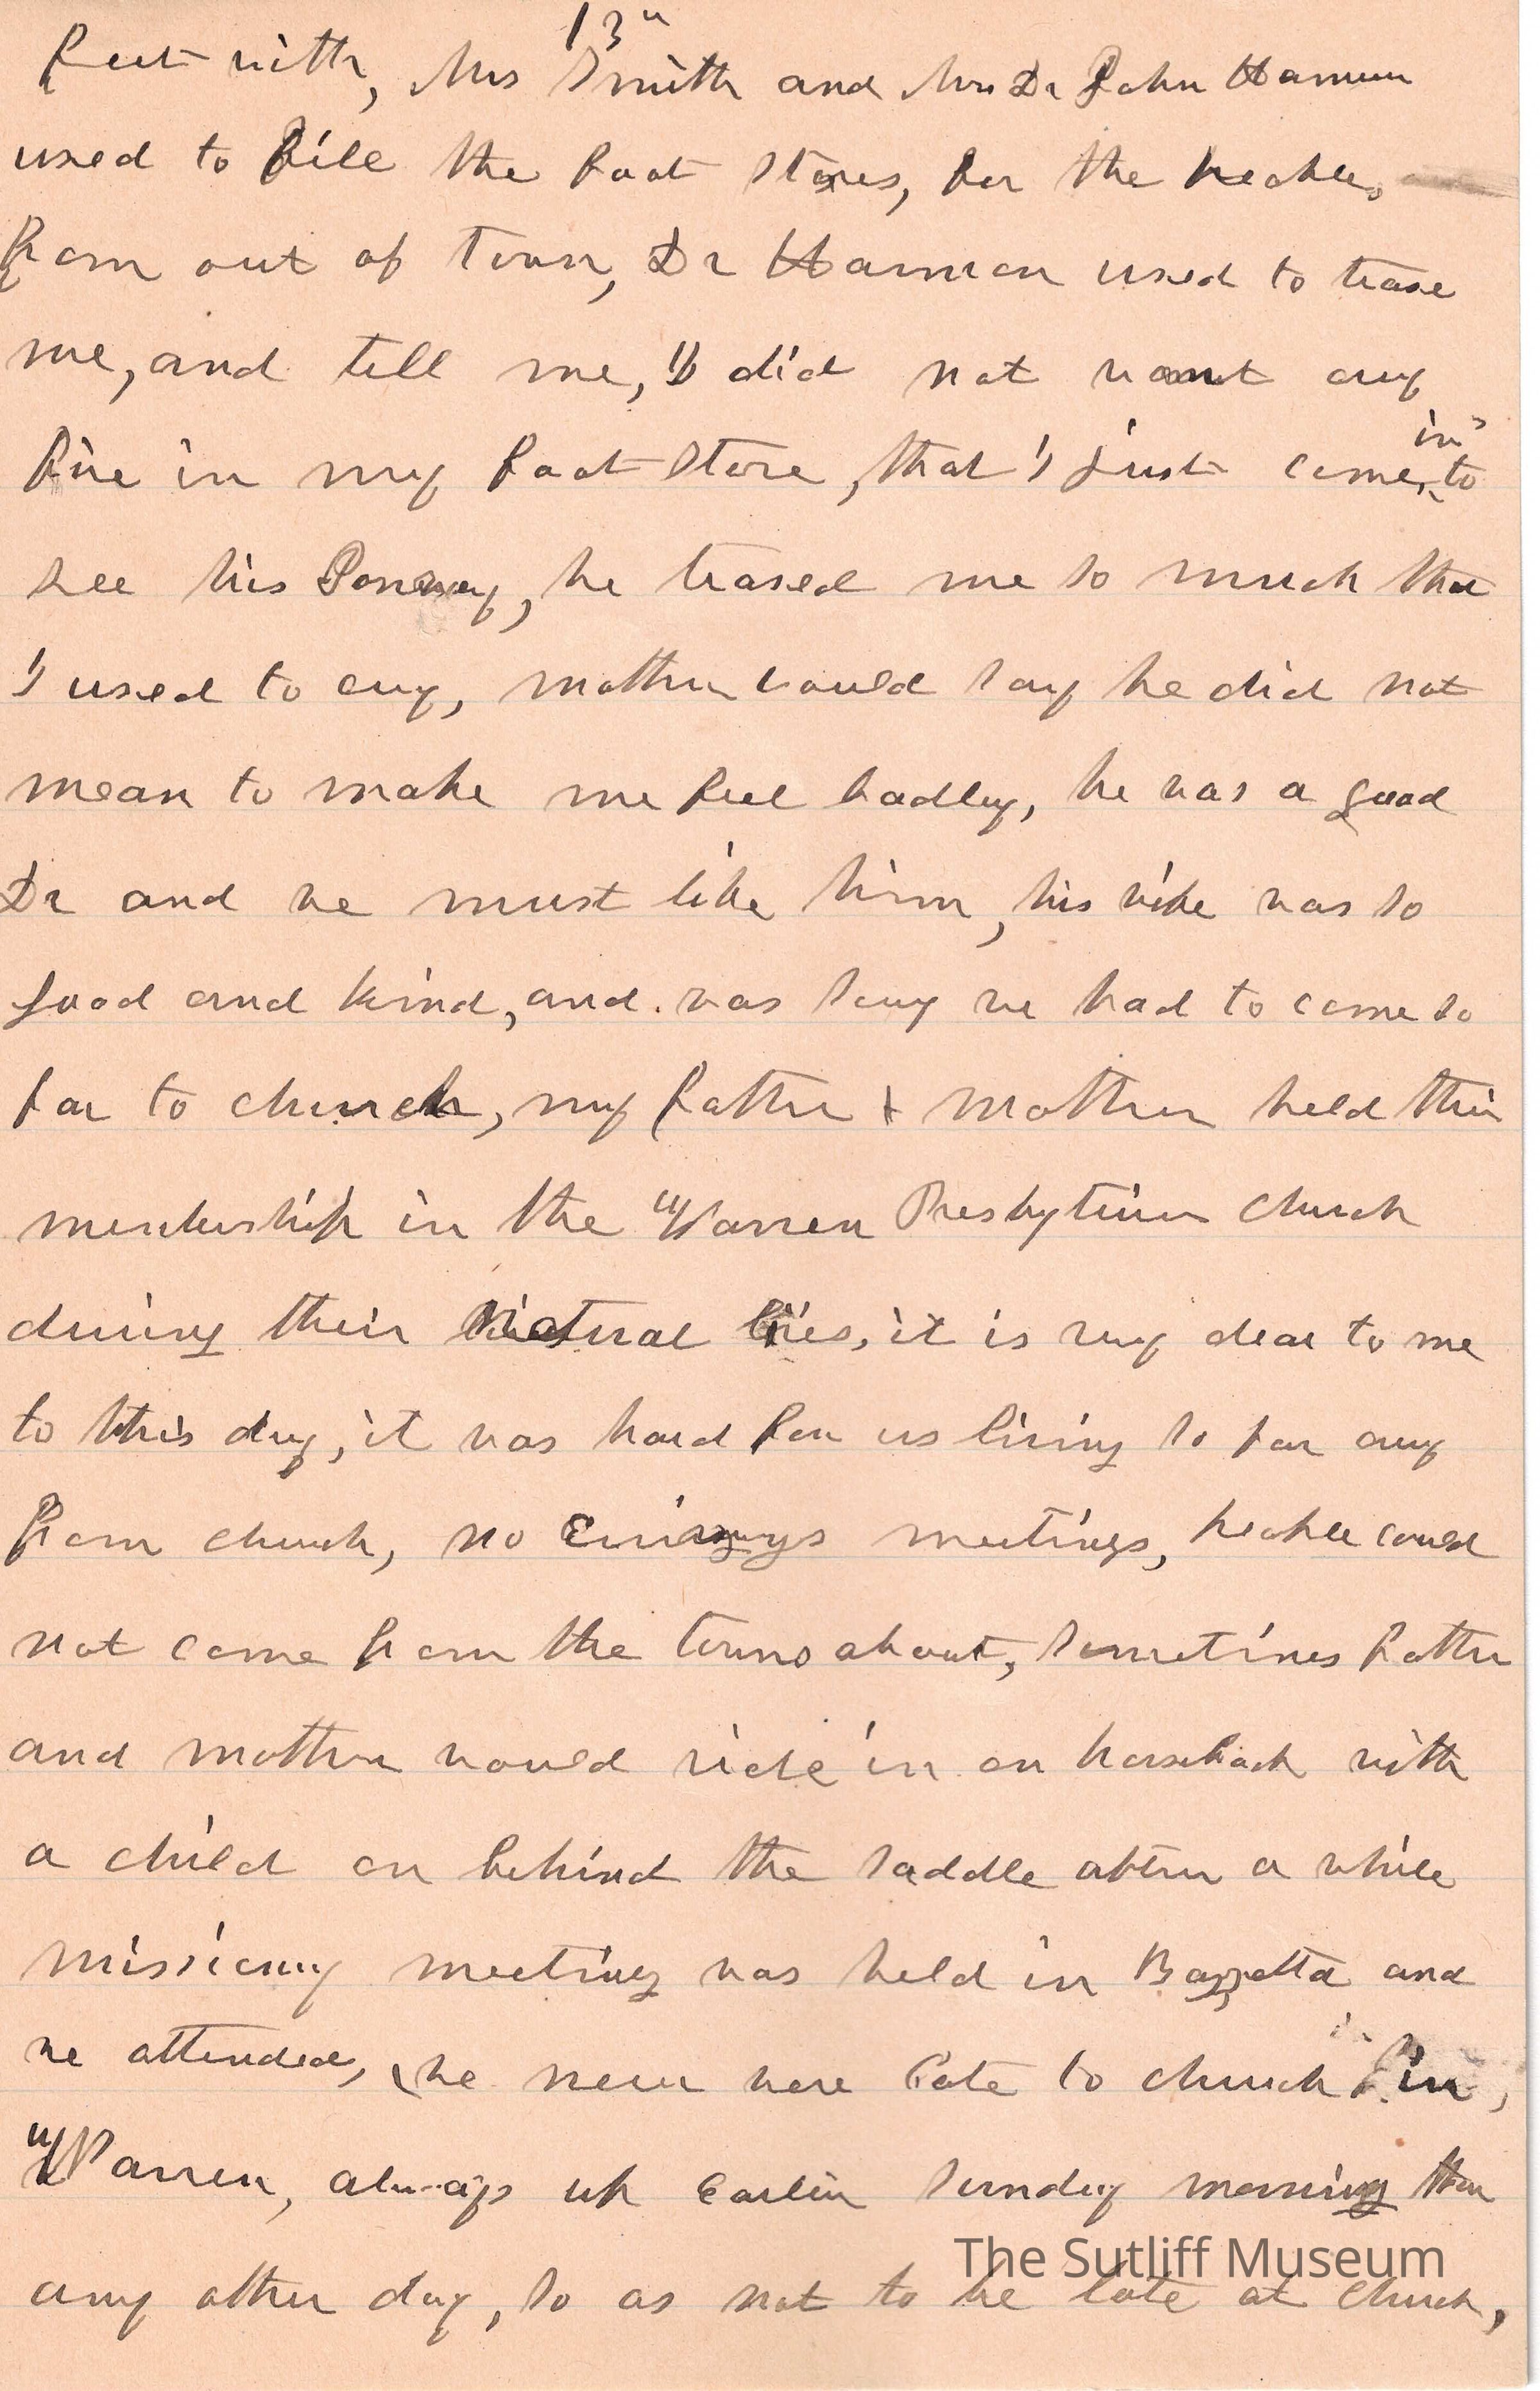 13"
feet with, Mrs Smith and Mrs Dr John Harmon
used to fill the foot stoves, for the people,
from out of town, Dr Harmon used to tease
me, and tell me, I did not want any
fire in my foot stove, that I just come in to
see his Poney, he teased me so much that
I used to cry, mother would say he did not
mean to make me feel badly, he was a good
Dr and we must like him, his wife was so
good and kind, and was sorry we had to come so
far to church, my father & mother held their
membership in the Warren Presbyterian church
during their natural lives, it is very dear to me
to this day, it was hard for us living so far away
from church, no evenings meetings, people could
not come from the towns about, sometimes father
and mother would ride in on horseback with
a child on behind the saddle after a while
missionary meeting was held in Bazzetta and
we attended, we never were late to church in,
Warren, always up earlier Sunday morning than
any other day, so as not to be late at church,
The Sutliff Museum